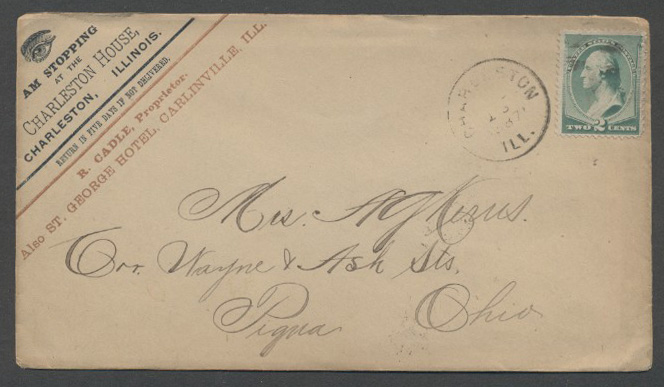 AM STOPPING
AT THE
CHARLESTON HOUSE,
CHARLESTON, ILLINOIS.
RETURN IN FIVE DAYS IF NOT DELIVERED.
R. CADLE, Proprietor.
Also ST. GEORGE HOTEL, CARLINVILLE, ILL.
CHARLESTON
ILL.
TWO 2 CENTS
Mrs.
Cor. Wayne & Ash Sts.
Piqua Ohio